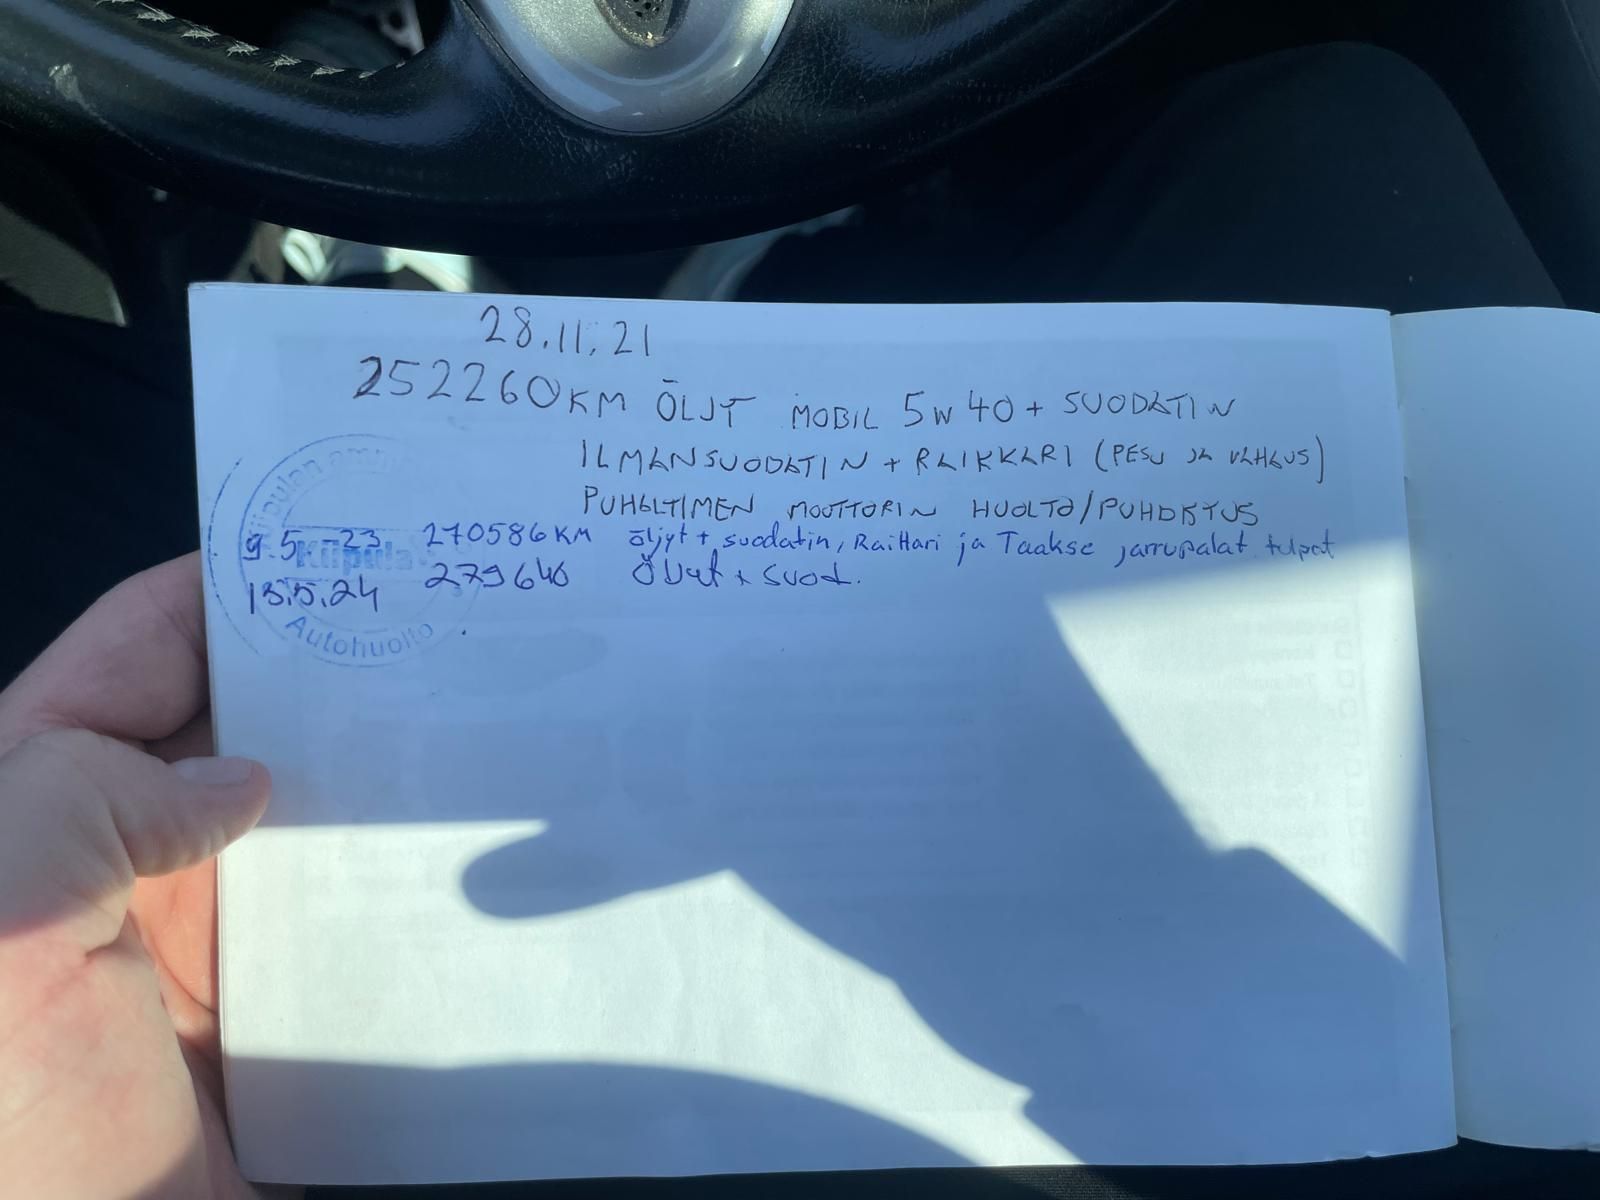 28.11.21
252260KM ÖLJYT MOBIL 5W40 + SUODATIN
ILMANSUODATIN + RAIKKARI (PESU JA VAHAUS)
PUHALTIMEN MOOTTORIN HUOLTO/PUHDISTUS
9.5-23 270586KM öljyt + suodatin, Raittari ja Taakse jarrupalat tulpat
13.5.24 279640 Öljyt + suod.
Kiipulan amm
Kiipula
Autohuolto